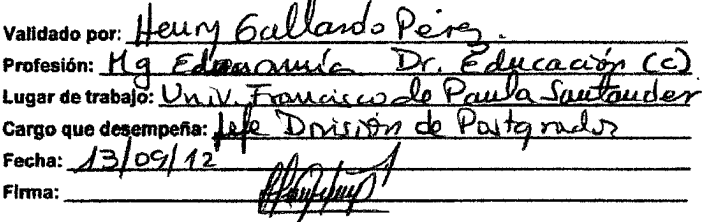 Validado por: Henry Gallardo Pérez.
Profesión: Mg Economía Dr. Educación (c)
Lugar de trabajo: Univ. Francisco de Paula Santander
Cargo que desempeña: Jefe División de Postgrados
Fecha: 13/09/12
Firma: